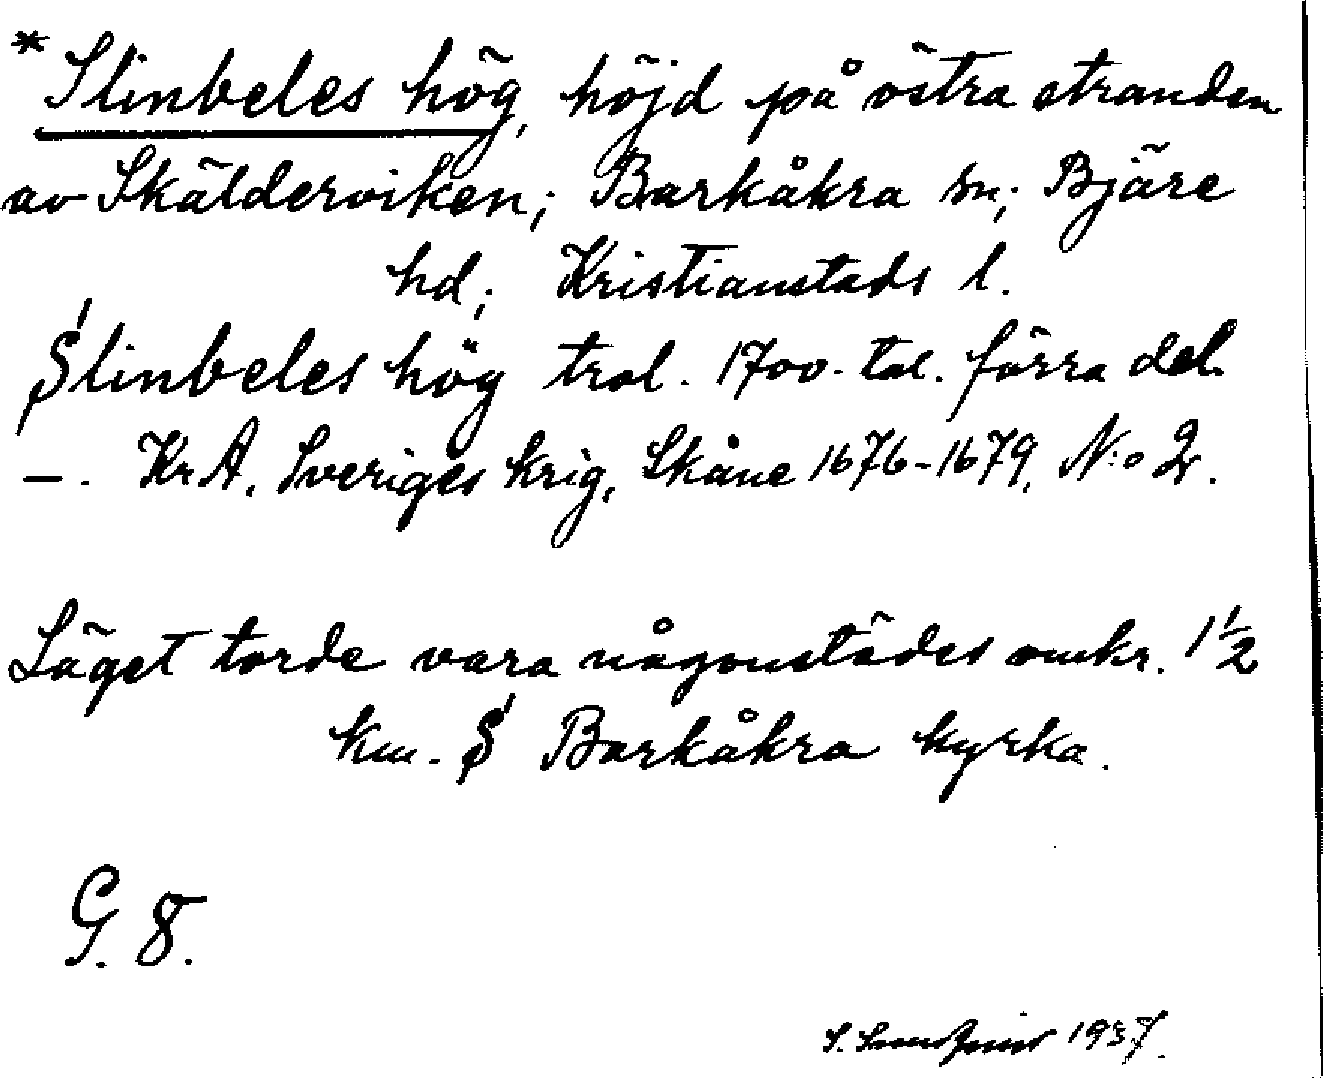 * Slinbeles hög, höjd på östra stranden
av Skälderviken; Barkåkra sn; Bjäre
hd; Kristianstads l.
Slinbeles hög trol. 1700-tal. förra del.
—. Kr A. Sveriges krig, Skåne 1676-1679, N:o 2.
Läget torde vara någonstädes omkr. 1 1/2
km. S Barkåkra kyrka.
G. 8.
S. 1937.